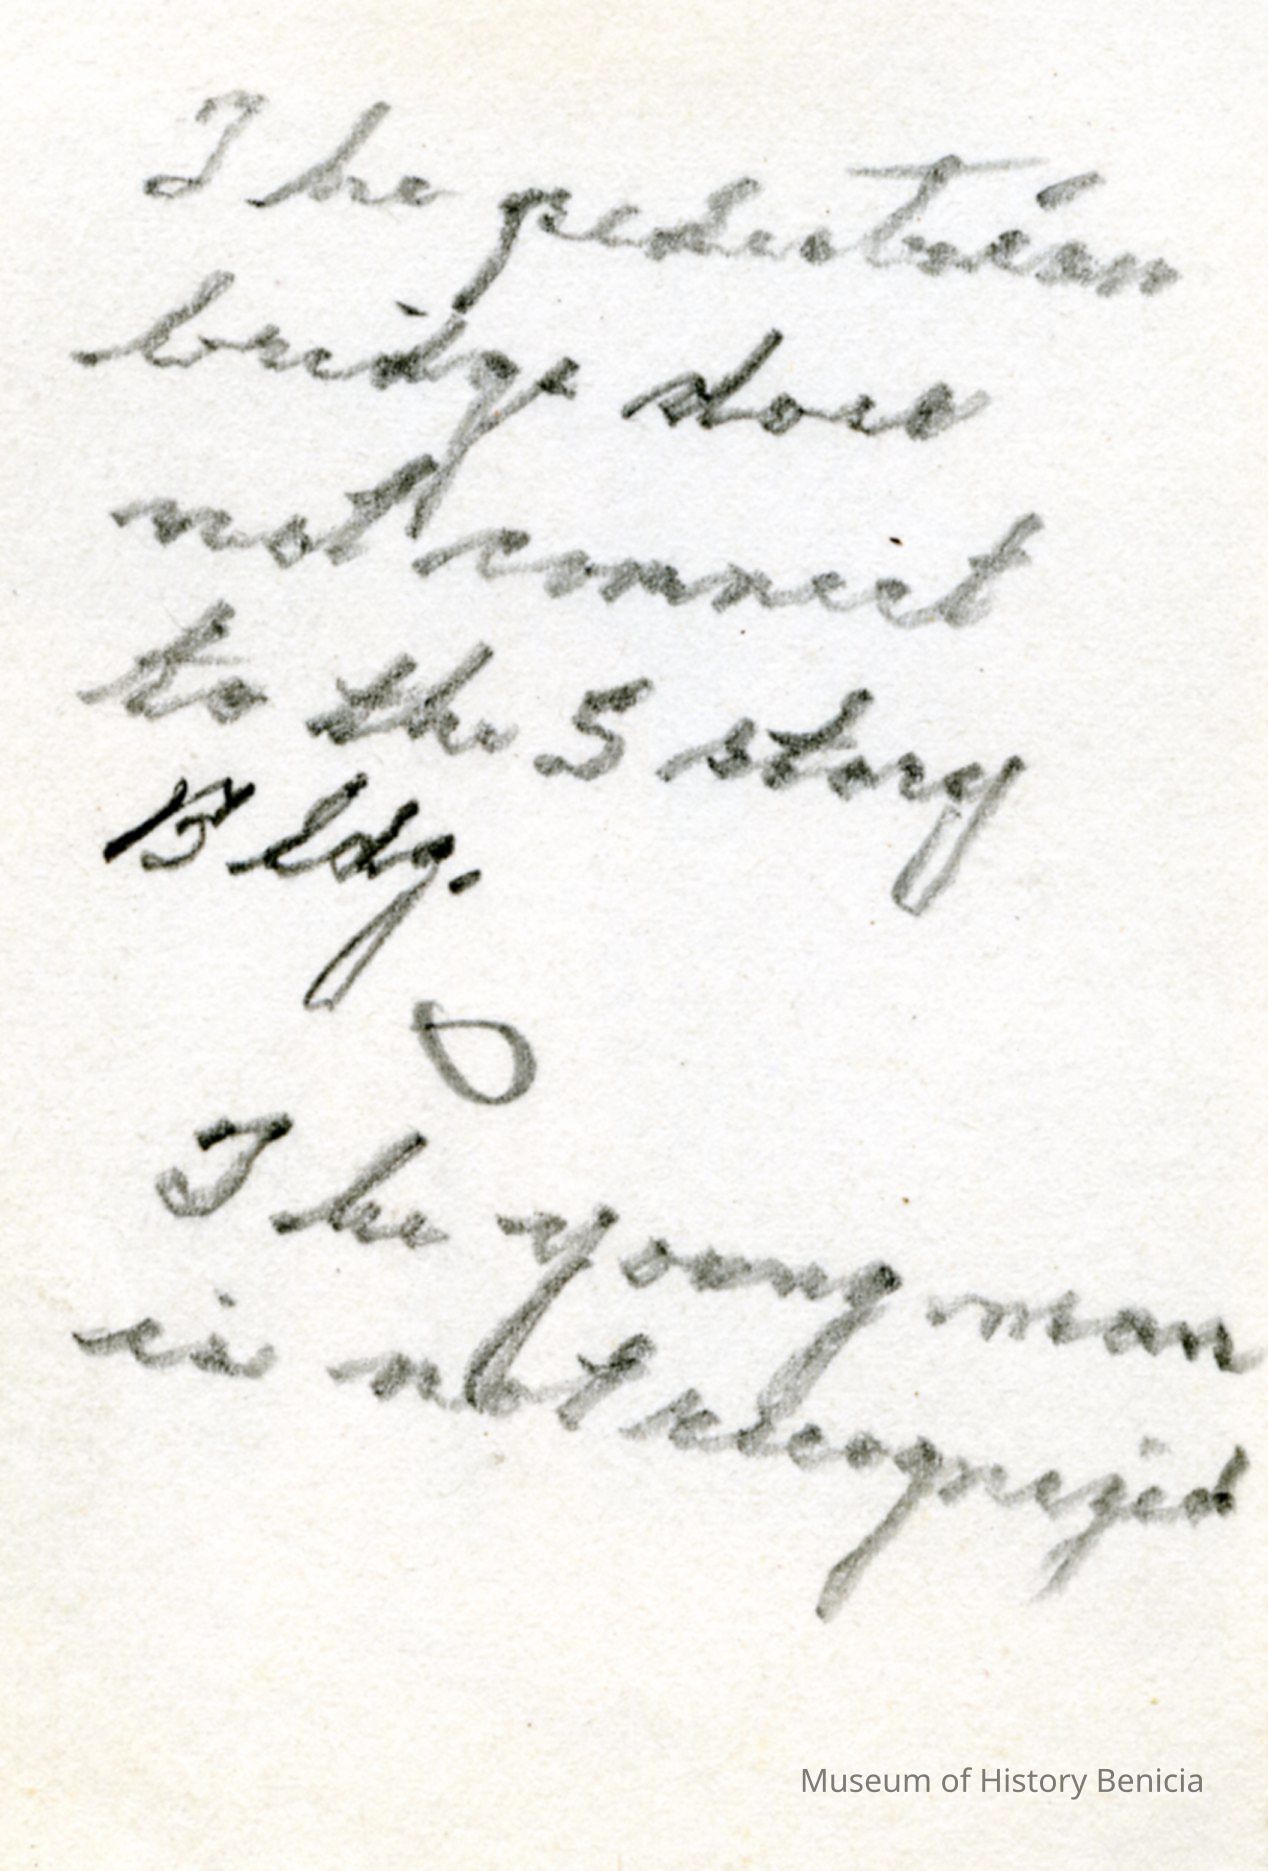 The pedestrian
bridge does
not connect
to the 5 story
Bldg.
O
The young man
is not recognized
Museum of History Benicia